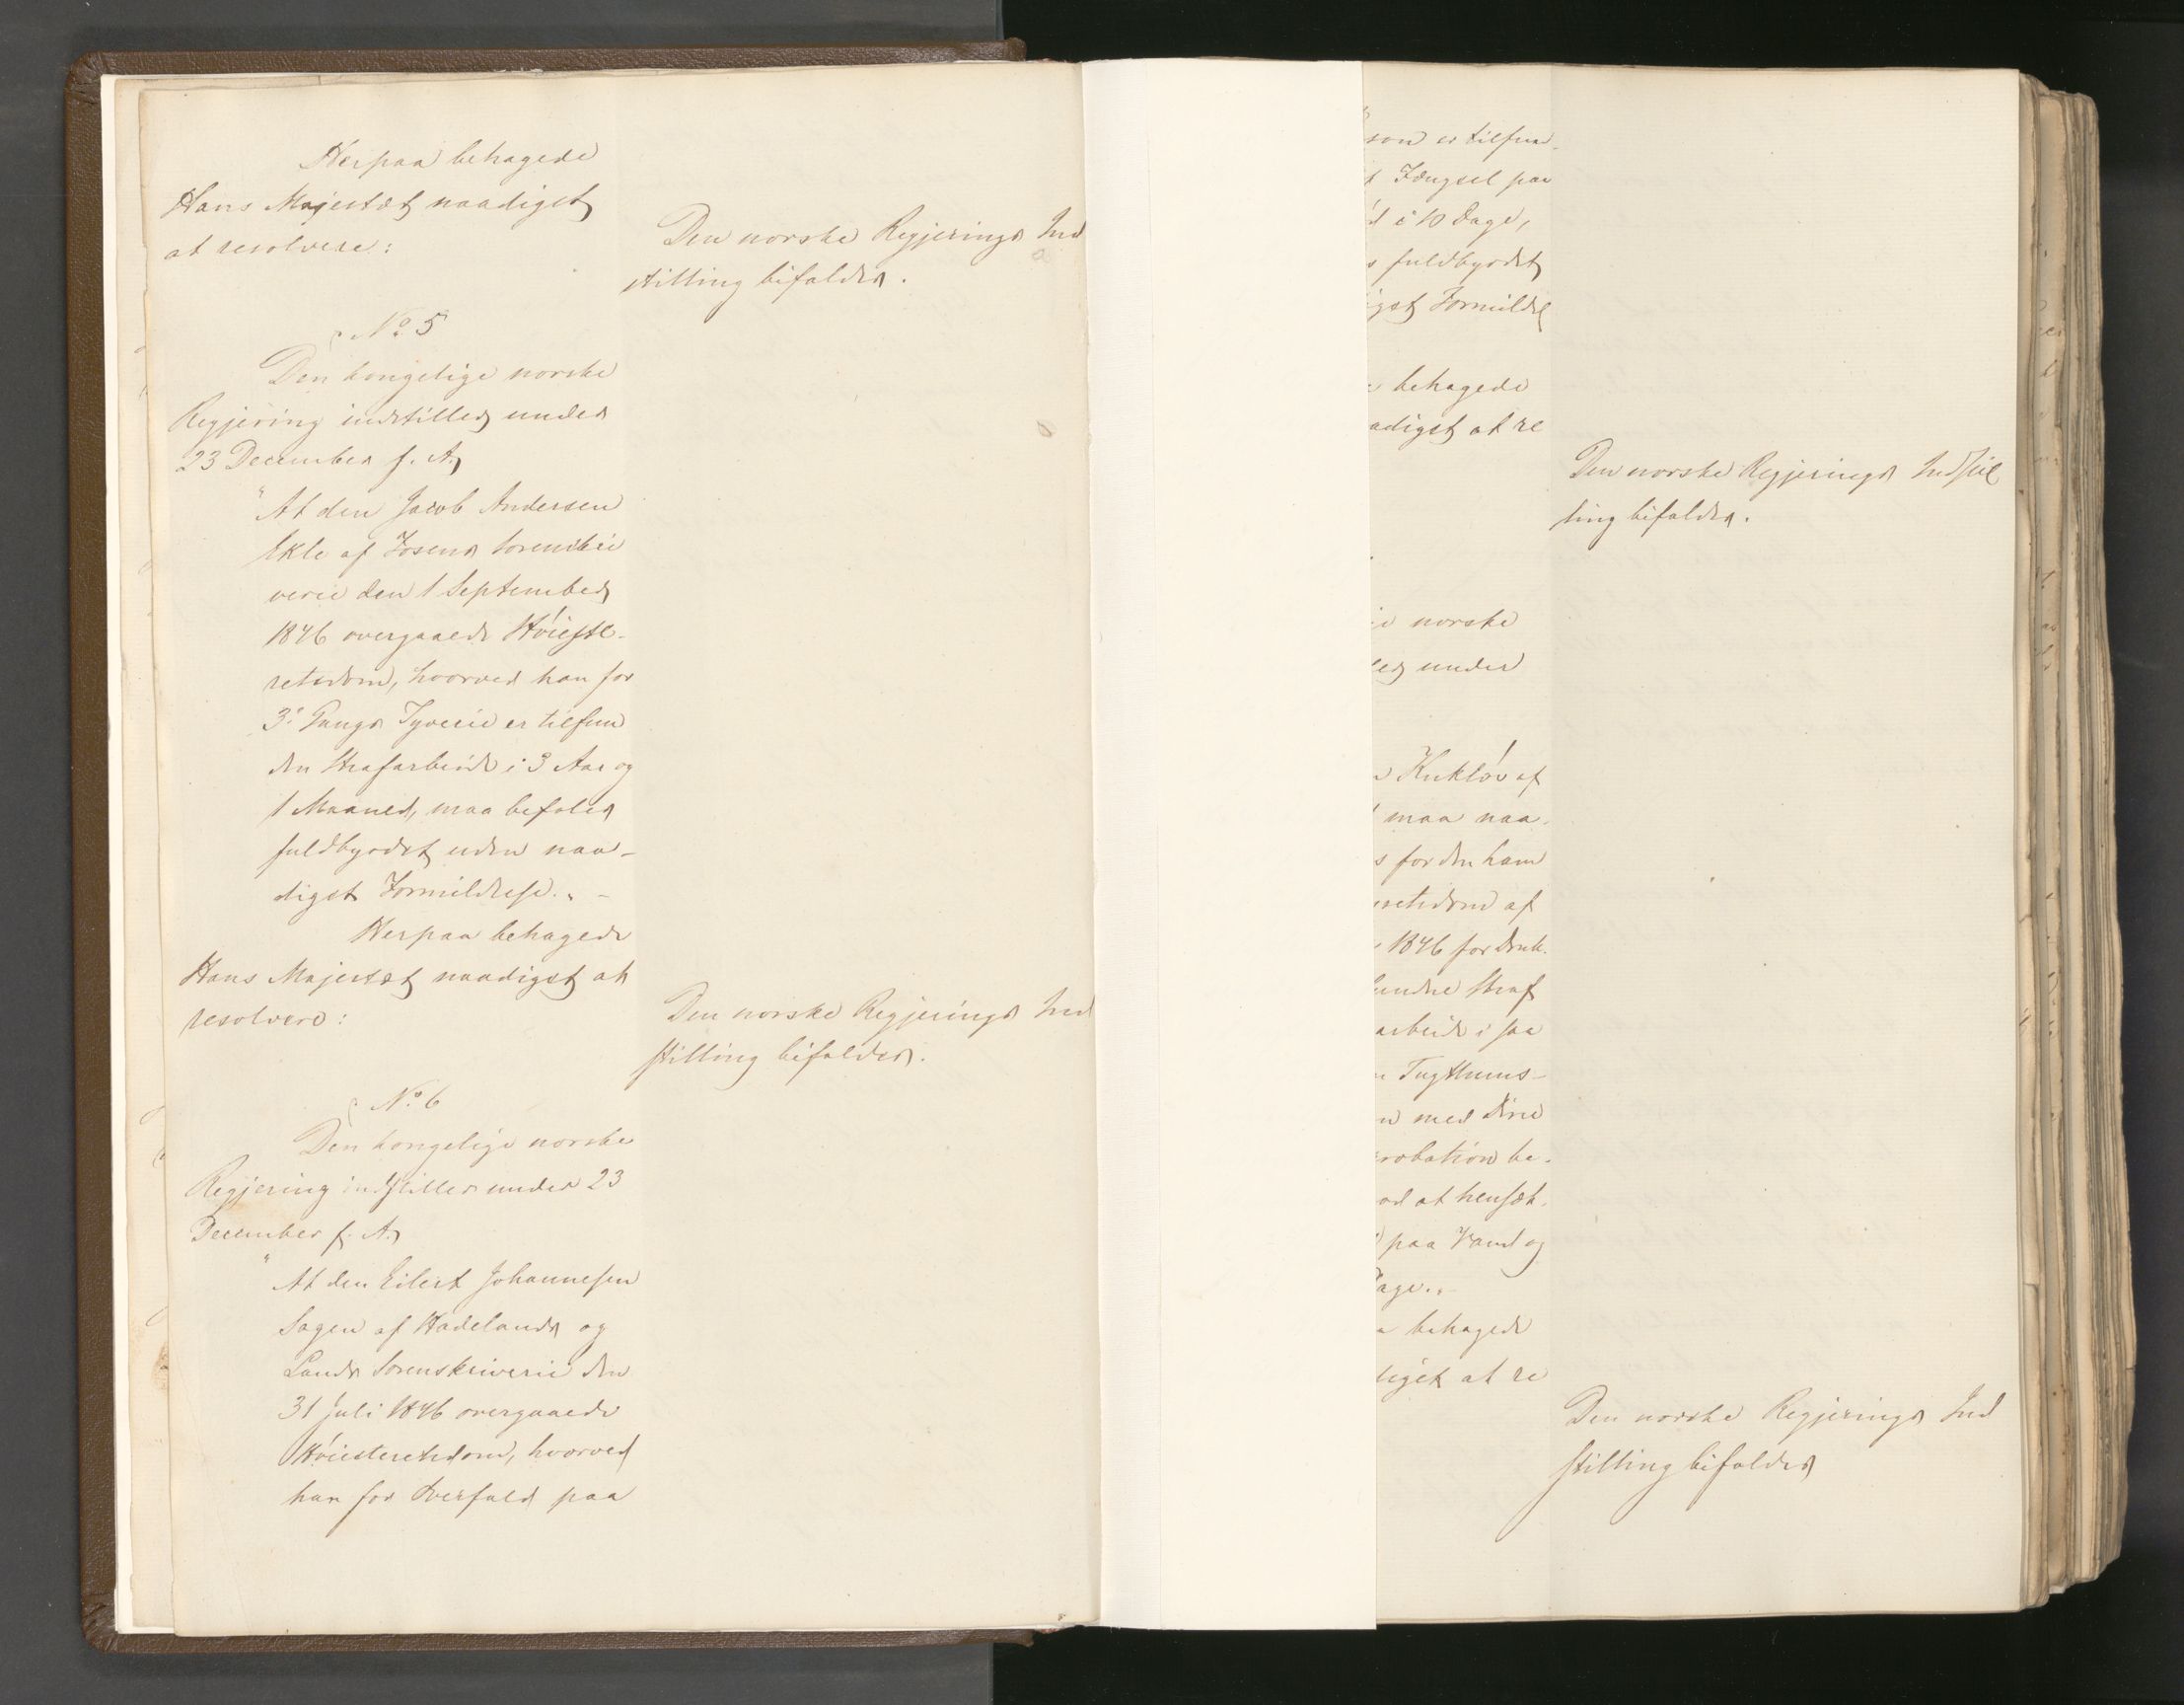 Herpaa behagede
Hans Majestæt naadigst
at resolvere:
Den norske Regjerings Ind
stilling bifaldes.
No 5
Den kongelige norske
Regjering indstiller under
23 December f. A.
"At den Jacob Andersen
af Fosens Sorenskri
verie den 1 September
1846 overgaaede Høieste-
retsdom, hvorved han for
3die Gangs Tyverie er tilfun
den Strafarbeide i 3 Aar og
1 Maaned, maa befales
fuldbyrdet uden naa-
digst Formildelse." -
Herpaa behagede
Hans Majestæt naadigst at
resolvere:
Den norske Regjerings Ind
stilling bifaldes.
No 6
Den kongelige norske
Regjering indstiller under 23
December f. A.
"At den Eilert Johannesen
Sagen af Hadelands og
Lands Sorenskriverie den
31 Juli 1846 overgaaede
Høiesteretsdom, hvorved
han for Overfald paa
son er tilfun-
Fængsel paa
i 10 Dage,
fuldbyrdet
igst Formildel
behagede
adigst at re
Den norske Regjerings Indstil
ling bifaldes.
norske
under
Kukløv af
maa naa-
for den ham
retsdom af
1846 for Druk-
Straf
arbeide i saa
Tugthuus-
med
robation be-
at hensæt-
paa Vand og
age." -
behagede
digst at re
Den norske Regjerings Ind
stilling bifaldes